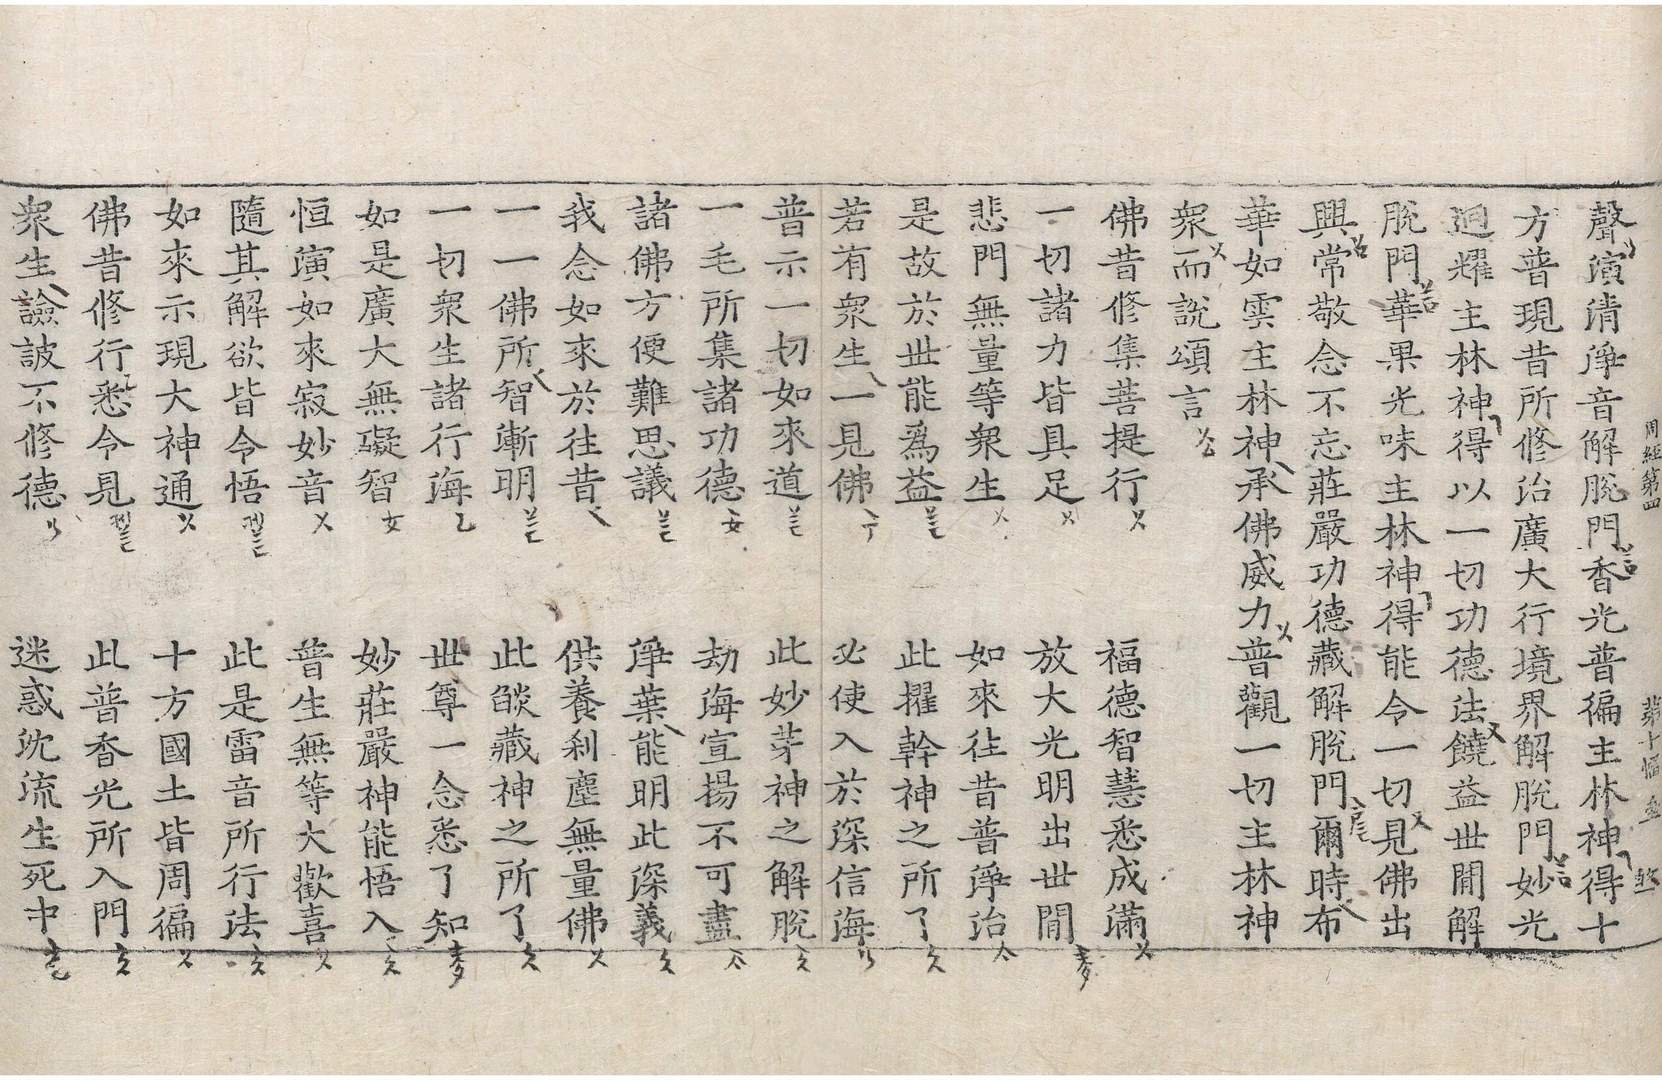 周經第四 第十幅
聲演清淨音解脫門香光普徧主林神得十
方普現昔所修治廣大行境界解脫門妙光
迥耀主林神得以一切功德法饒益世間解
脫門華果光味主林神得能令一切見佛出
興常敬念不忘莊嚴功德藏解脫門爾時布
華如雲主林神承佛威力普觀一切主林神
衆而說頌言
佛昔修集菩提行 福德智慧悉成滿
一切諸力皆具足 放大光明出世間
悲門無量等衆生 如來往昔普淨治
是故於世能爲益 此擢幹神之所了
若有衆生一見佛 必使入於深信海
普示一切如來道 此妙芽神之解脫
一毛所集諸功德 劫海宣揚不可盡
諸佛方便難思議 淨葉能明此深義
我念如來於往昔 供養刹塵無量佛
一一佛所智漸明 此燄藏神之所了
一切衆生諸行海 世尊一念悉了知
如是廣大無礙智 妙莊嚴神能悟入
恒演如來寂妙音 普生無等大歡喜
隨其解欲皆令悟 此是雷音所行法
如來示現大神通 十方國土皆周徧
佛昔修行悉令見 此普香光所入門
衆生譣詖不修德 迷惑沈流生死中